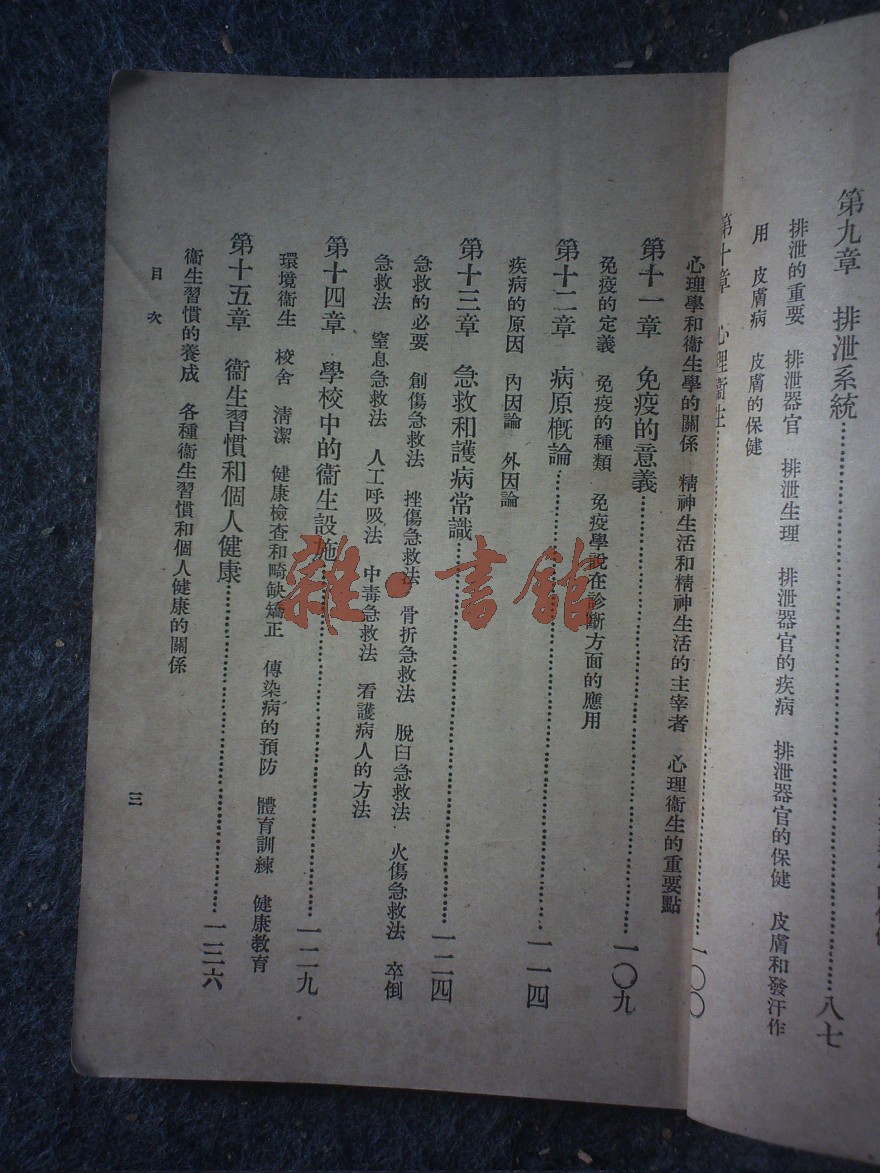 第九章　排泄系統……八七
排泄的重要　排泄器官　排泄生理　排泄器官的疾病　排泄器官的保健　皮膚和發汗作
用　皮膚病　皮膚的保健
第十章　心理衞生……一〇〇
心理學和衞生學的關係　精神生活和精神生活的主宰者　心理衞生的重要點
第十一章　免疫的意義……一〇九
免疫的定義　免疫的種類　免疫學說在診斷方面的應用
第十二章　病原概論……一一四
疾病的原因　內因論　外因論
第十三章　急救和護病常識……一二四
急救的必要　創傷急救法　挫傷急救法　骨折急救法　脫臼急救法　火傷急救法　卒倒
急救法　窒息急救法　人工呼吸法　中毒急救法　看護病人的方法
第十四章　學校中的衞生設施……一二九
環境衞生　校舍　清潔　健康檢查和畸缺矯正　傳染病的預防　體育訓練　健康教育
第十五章　衞生習慣和個人健康……一三六
衞生習慣的養成　各種衞生習慣和個人健康的關係
目次
三
雜·書館